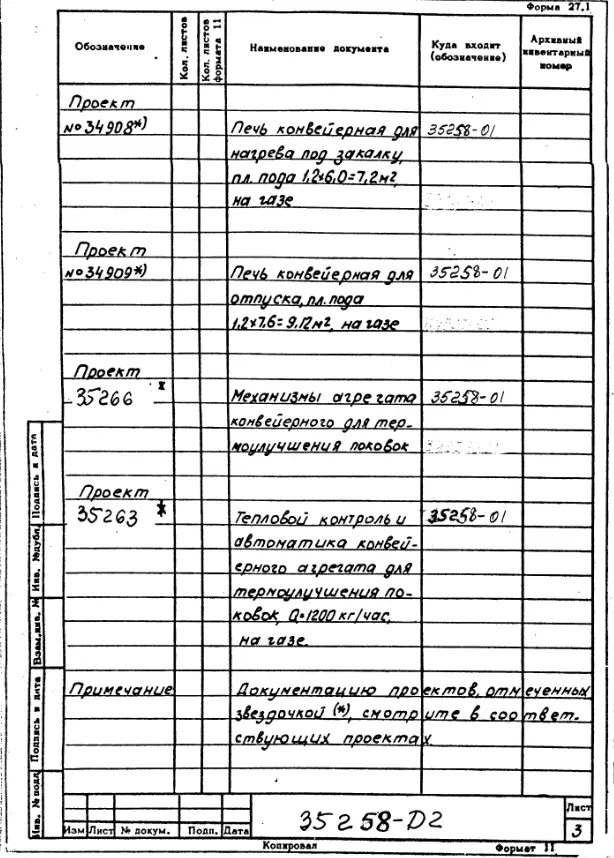 Форма 27.1
Обозначение
Кол. листов
Кол. листов формата 11
Наименование документа
Куда входит (обозначение)
Архивный инвентарный номер
Проект
№ 34908*)
Печь конвейерная для
35258-01
нагрева под закалку,
пл. пода 1,2×6,0=7,2м2,
на газе
Проект
№ 34909*)
Печь конвейерная для
35258-01
отпуска, пл. пода
1,2×7,6=9,12м2, на газе
Проект
35266 *
Механизмы агрегата
35258-01
конвейерного для тер-
моулучшения поковок
Проект
35263 *
Тепловой контроль и
35258-01
автоматика конвей-
ерного агрегата для
термоулучшения по-
ковок, Q=1200 кг/час,
на газе.
Примечание
Документацию проектов, отмеченных
звездочкой (*), смотрите в соответ-
ствующих проектах.
Инв. № подл.
Подпись и дата
Взам. инв. №
Инв. № дубл.
Подпись и дата
Изм
Лист
№ докум.
Подп.
Дата
35258-D2
Лист
3
Копировал
Формат 11